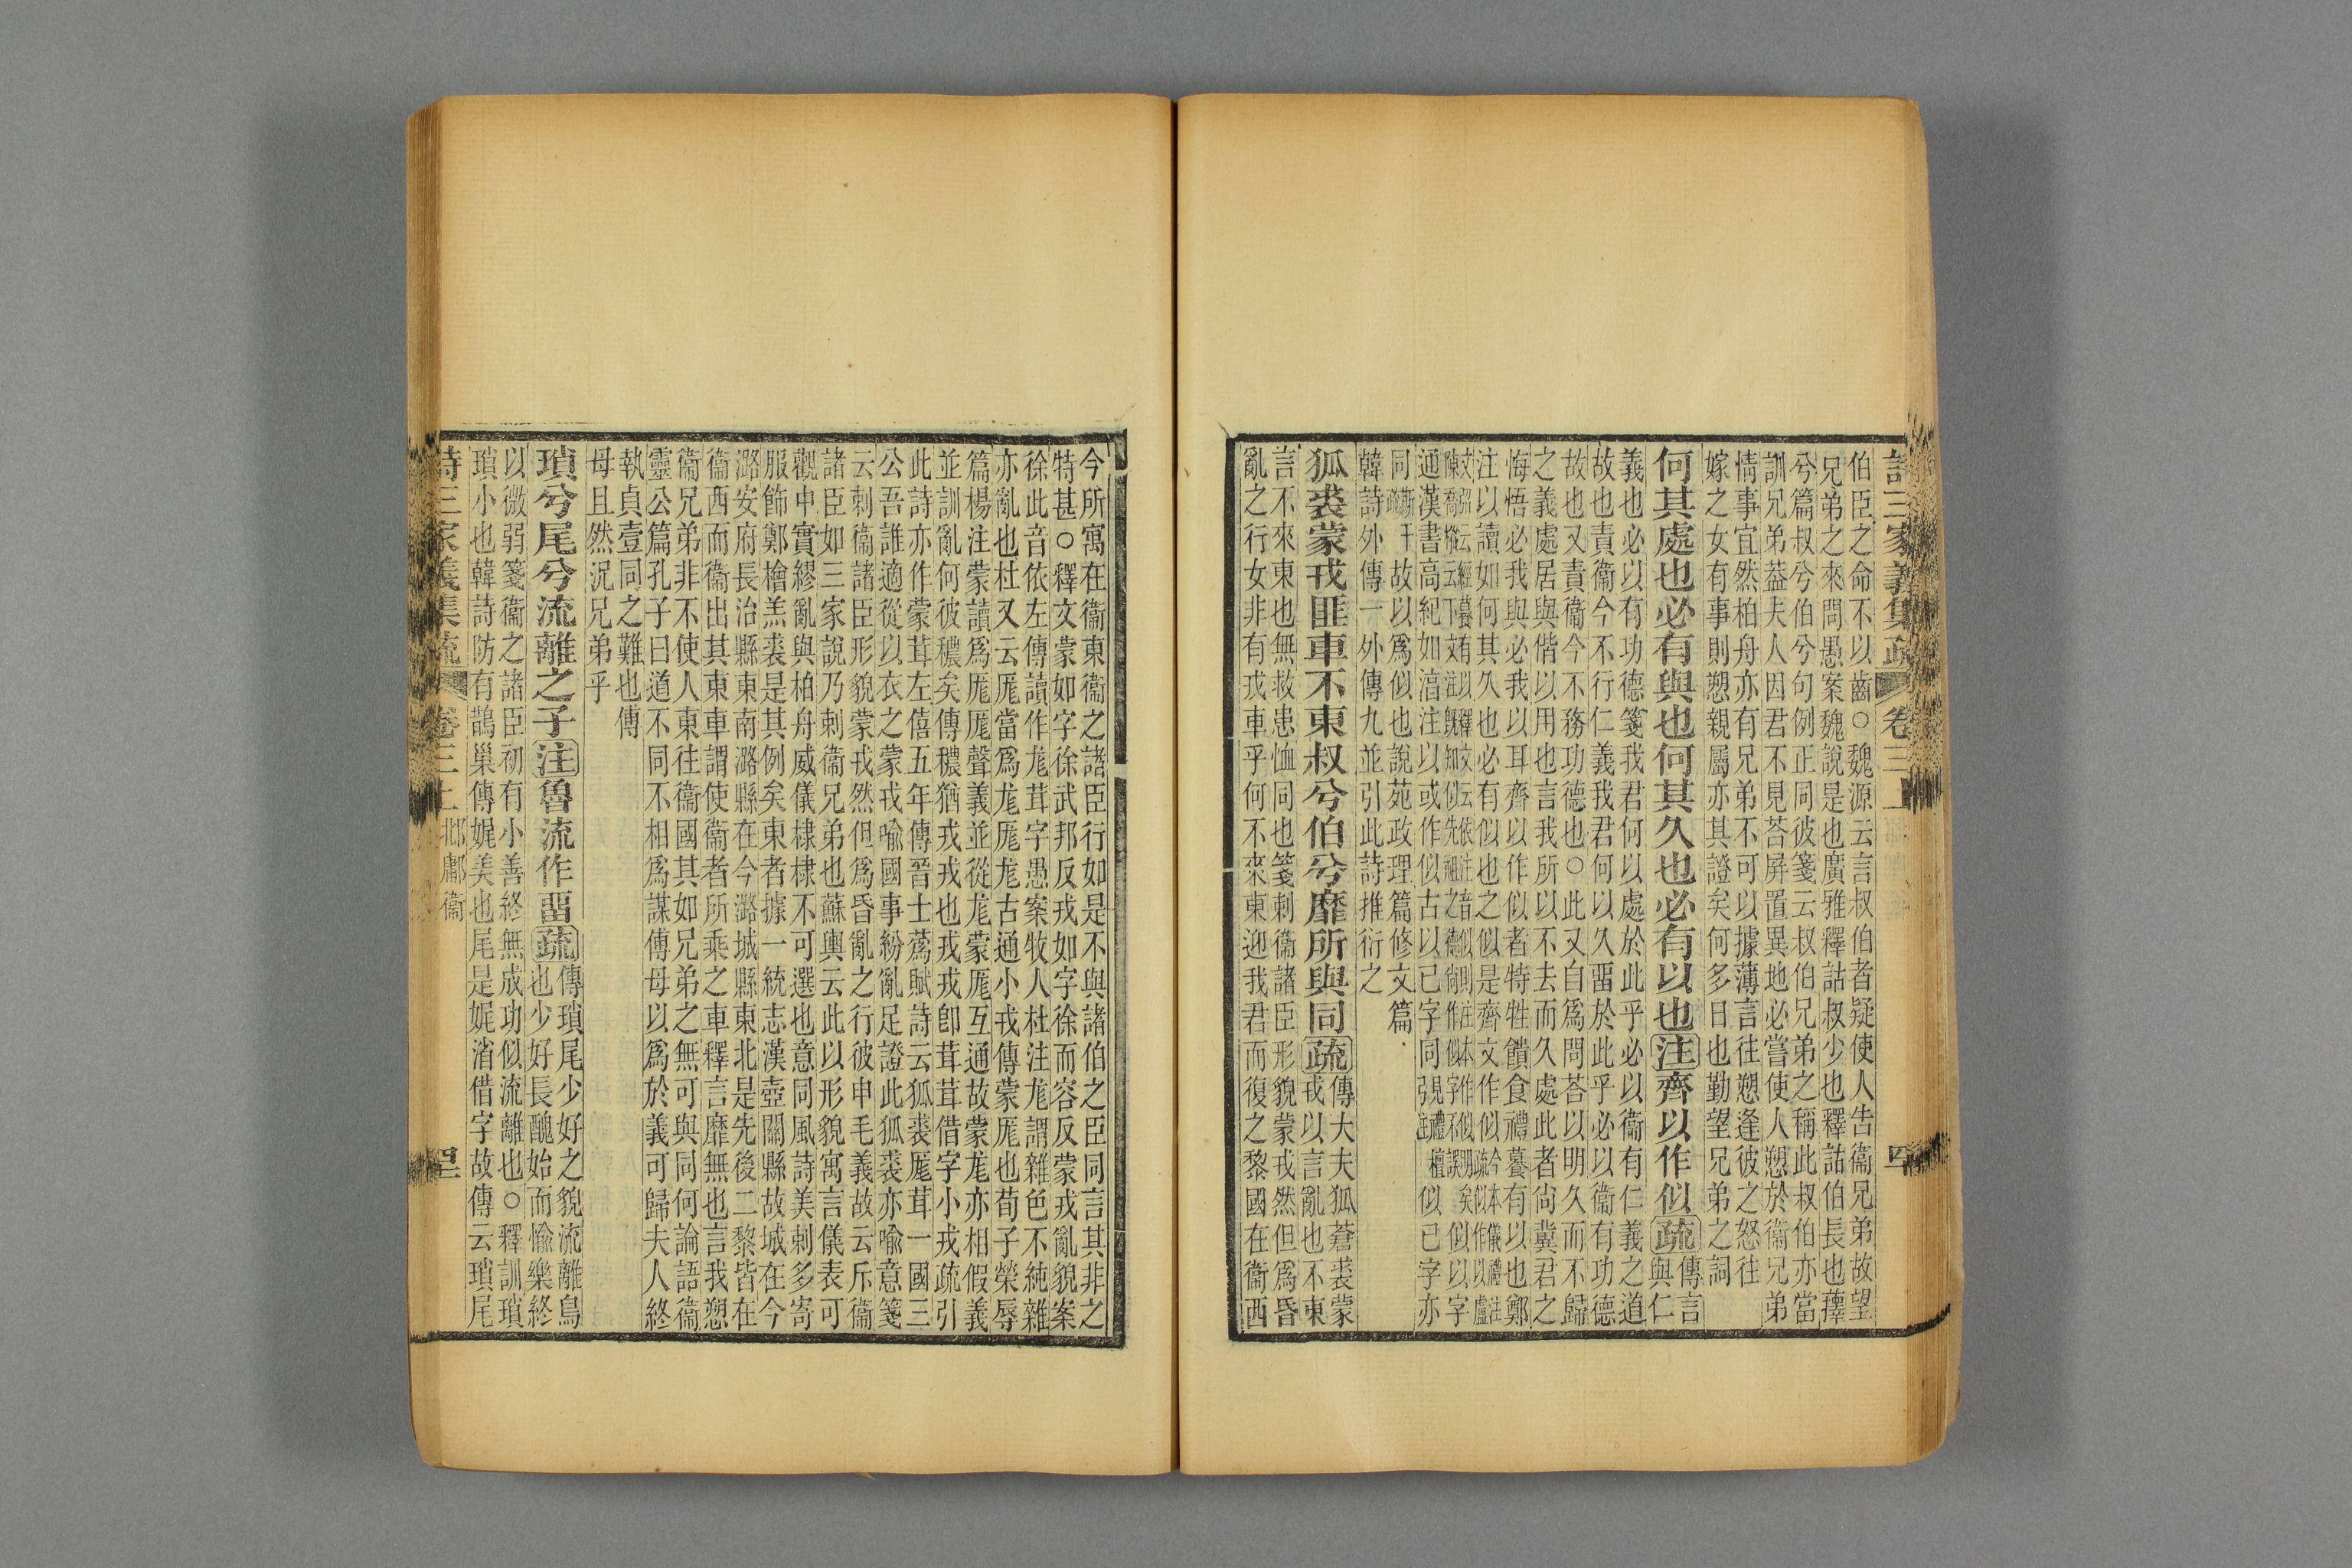 詩三家義集疏 卷三上
伯臣之命不以齒○魏源云言叔伯者疑使人告衞兄弟故望
兄弟之來問愚案魏說是也廣雅釋詁叔少也釋詁伯長也蘀
兮篇叔兮伯兮句例正同彼箋云叔伯兄弟之稱此叔伯亦當
訓兄弟葢夫人因君不見荅屏置異地必嘗使人愬於衞兄弟
情事宜然柏舟亦有兄弟不可以據薄言往愬逢彼之怒往
嫁之女有事則愬親屬亦其證矣何多日也勤望兄弟之詞
何其處也必有與也何其久也必有以也注齊以作似疏傳言
與仁
義也必以有功德箋我君何以處於此乎必以衞有仁義之道
故也責衞今不行仁義我君何以久畱於此乎必以衞有功德
故也又責衞今不務功德也○此又自爲問荅以明久而不歸
之義處居與偕以用也言我所以不去而久處此者尙冀君之
悔悟必我與必我以耳齊以作似者特牲饋食禮養有以也鄭
注以讀如何其久也必有似也之似是齊文作似
通漢書高紀如淯注以或作似古以已字同
似已字亦
同
故以爲似也說苑政理篇修文篇
韓詩外傳一外傳九並引此詩推衍之
狐裘蒙戎匪車不東叔兮伯兮靡所與同疏傳大夫狐蒼裘蒙
戎以言亂也不東
言不來東也無救患恤同也箋刺衞諸臣形貌蒙戎然但爲昏
亂之行女非有戎車乎何不來東迎我君而復之黎國在衞西
今所寓在衞東衞之諸臣行如是不與諸伯之臣同言其非之
特甚○釋文蒙如字徐武邦反戎如字徐而容反蒙戎亂貌案
徐此音依左傳讀作尨茸字愚案牧人杜注尨謂雜色不純雜
亦亂也杜又云厖當爲尨厖尨古通小戎傳蒙厖也荀子榮辱
篇楊注蒙讀爲厖厖聲義並從尨蒙厖互通故蒙尨亦相假義
並訓亂何彼穠矣傳穠猶戎戎也戎戎卽茸茸借字小戎疏引
此詩亦作蒙茸左僖五年傳晉士蔿賦詩云狐裘厖茸一國三
公吾誰適從以衣之蒙戎喻國事紛亂足證此狐裘亦喻意箋
云刺衞諸臣形貌蒙戎然但爲昏亂之行彼申毛義故云斥衞
諸臣如三家說乃刺衞兄弟也蘇輿云此以形貌寓言儀表可
觀中實繆亂與柏舟威儀棣棣不可選也意同風詩美刺多寄
服飾鄭檜羔裘是其例矣東者據一統志漢壺關縣故城在今
潞安府長治縣東南潞縣在今潞城縣東北是先後二黎皆在
衞西而衞出其東車謂使衞者所乘之車釋言靡無也言我愬
衞兄弟非不使人東往衞國其如兄弟之無可與同何論語衞
靈公篇孔子曰道不同不相爲謀傳母以爲於義可歸夫人終
執貞壹同之難也傳
母且然況兄弟乎
瑣兮尾兮流離之子注魯流作畱疏傳瑣尾少好之貌流離鳥
也少好長醜始而愉樂終
以微弱箋衞之諸臣初有小善終無成功似流離也○釋訓瑣
瑣小也韓詩防有鵲巢傳娓美也尾是娓渻借字故傳云瑣尾
詩三家義集疏 卷三上 邶鄘衞